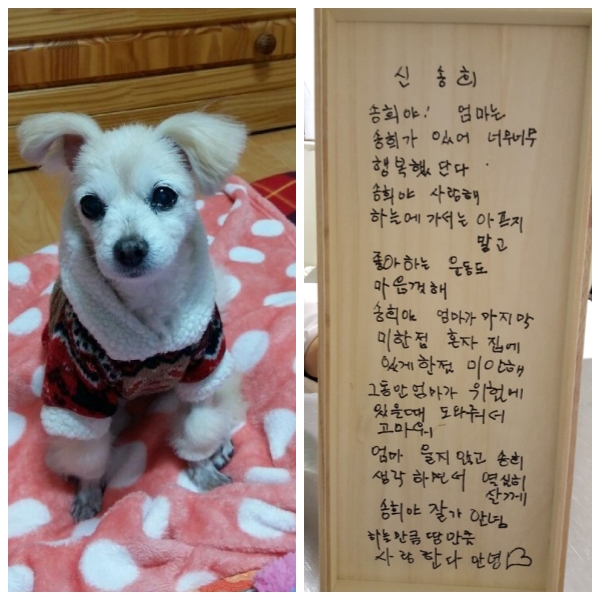 신 송희
송희야! 엄마는
송희가 있어 너무너무
행복했단다.
송희야 사랑해
하늘에 가서는 아프지
말고
좋아하는 운동도
마음껏해
송희야 엄마가 마지막
미한점 혼자 집에
있게한점 미안해
그동안 엄마가 위험에
있을때 도와줘서
고마워
엄마 울지않고 송희
생각하면서 열심히
살께
송희야 잘가 안녕
하늘만큼 땅만큼
사랑한다 안녕♡